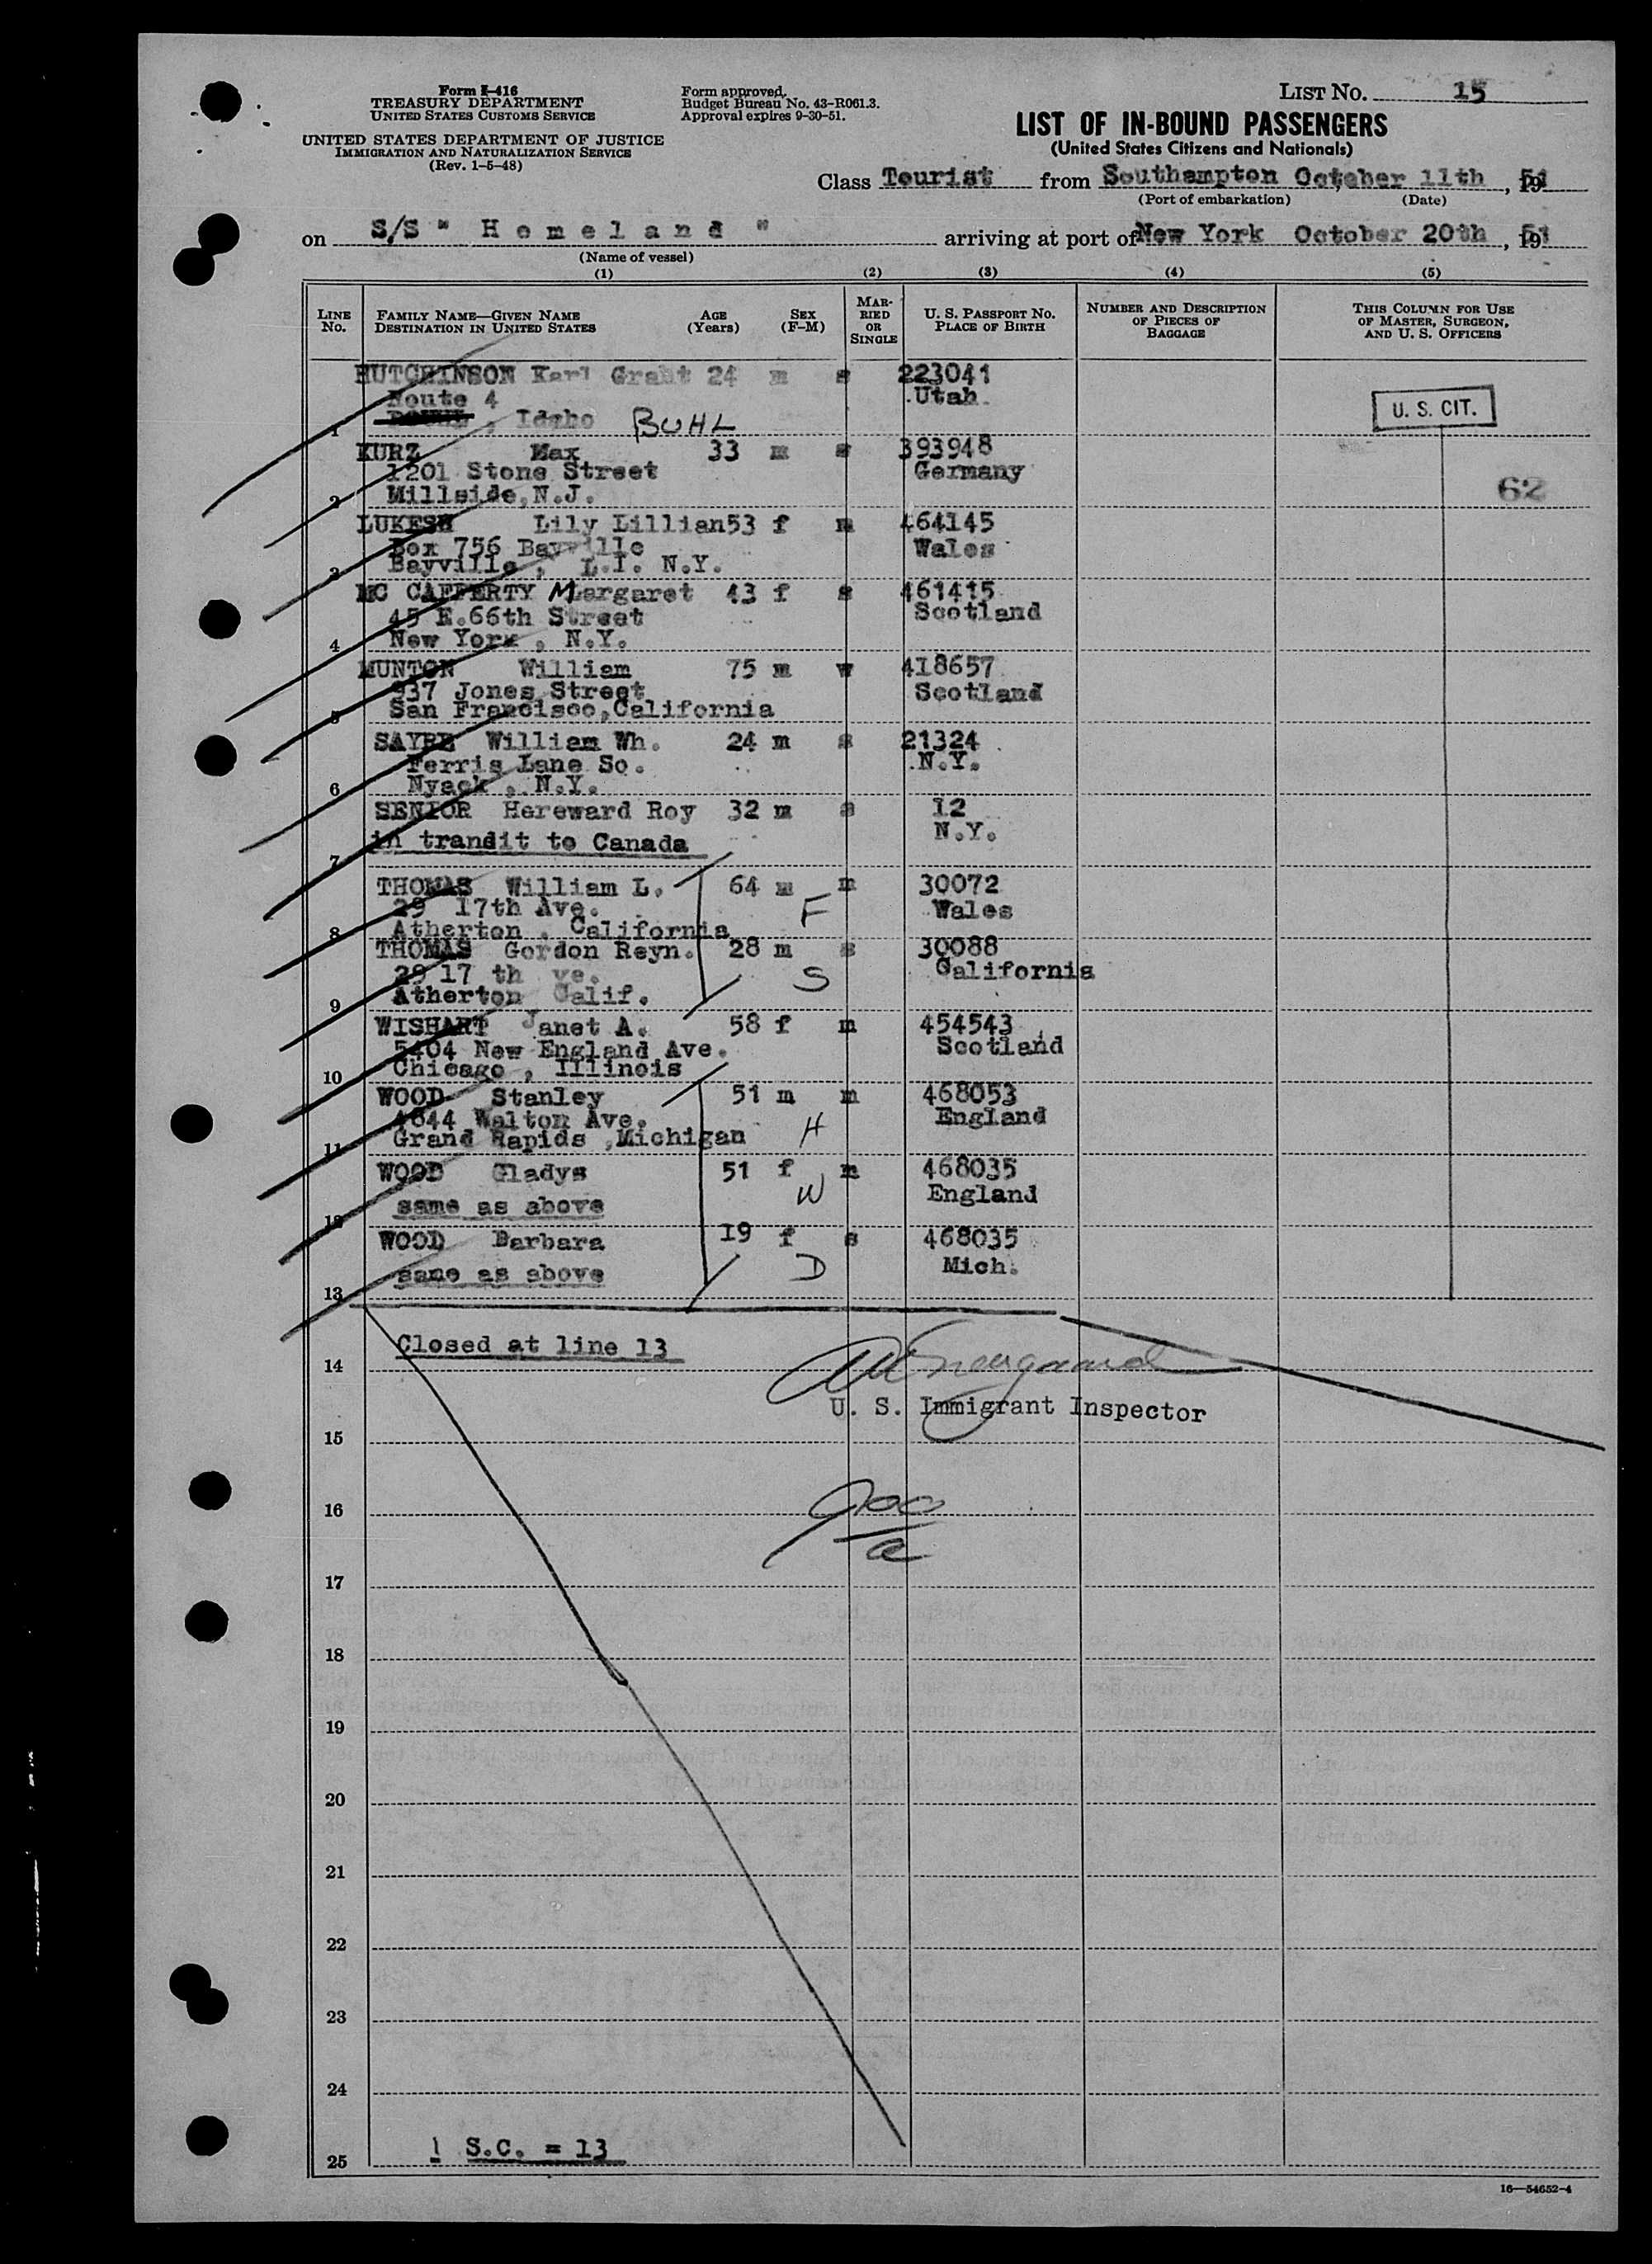 Form I-416
TREASURY DEPARTMENT
UNITED STATES CUSTOMS SERVICE
UNITED STATES DEPARTMENT OF JUSTICE
IMMIGRATION AND NATURALIZATION SERVICE
(Rev. 1-5-48)
Form approved.
Budget Bureau No. 43-R061.3.
Approval expires 9-30-51.
LIST No. 15
LIST OF IN-BOUND PASSENGERS
(United States Citizens and Nationals)
Class Tourist from Southampton October 11th, 1951
(Port of embarkation) (Date)
on S/S " Homeland " arriving at port of New York October 20th, 1951
(Name of vessel)
(1) (2) (3) (4) (5)
LINE No. FAMILY NAME—GIVEN NAME DESTINATION IN UNITED STATES AGE (Years) SEX (F-M) MARRIED OR SINGLE U. S. PASSPORT NO. PLACE OF BIRTH NUMBER AND DESCRIPTION OF PIECES OF BAGGAGE THIS COLUMN FOR USE OF MASTER, SURGEON, AND U. S. OFFICERS
HUTCHINSON Karl Grant 24 m s 223041
Route 4 Utah
1 , Idaho BUHL U. S. CIT.
KURZ Max 33 m s 393948
1201 Stone Street Germany
2 Millside, N.J. 62
LUKESH Lily Lillian 53 f m 464145
Box 756 Bayville Wales
3 Bayville , L.I. N.Y.
MC CAFFERTY Margaret 43 f s 461415
45 E.66th Street Scotland
4 New York , N.Y.
MUNTON William 75 m w 418657
937 Jones Street Scotland
5 San Francisco, California
SAYRE William Wh. 24 m s 21324
Ferris Lane So. N.Y.
6 Nyack , N.Y.
SENIOR Hereward Roy 32 m s 12
N.Y.
7 in transit to Canada
THOMAS William L. 64 m m 30072
29 17th Ave. F Wales
8 Atherton , California
THOMAS Gordon Reyn. 28 m s 30088
29 17 th ve. S California
9 Atherton Calif.
WISHART Janet A. 58 f m 454543
5404 New England Ave. Scotland
10 Chicago , Illinois
WOOD Stanley 51 m m 468053
4644 Walton Ave. England
11 Grand Rapids ,Michigan H
WOOD Gladys 51 f m 468035
W England
12 same as above
WOOD Barbara 19 f s 468035
D Mich.
same as above
13
Closed at line 13
14
U. S. Immigrant Inspector
15
16
17
18
19
20
21
22
23
24
1 S.C. = 13
25
16—54652-4